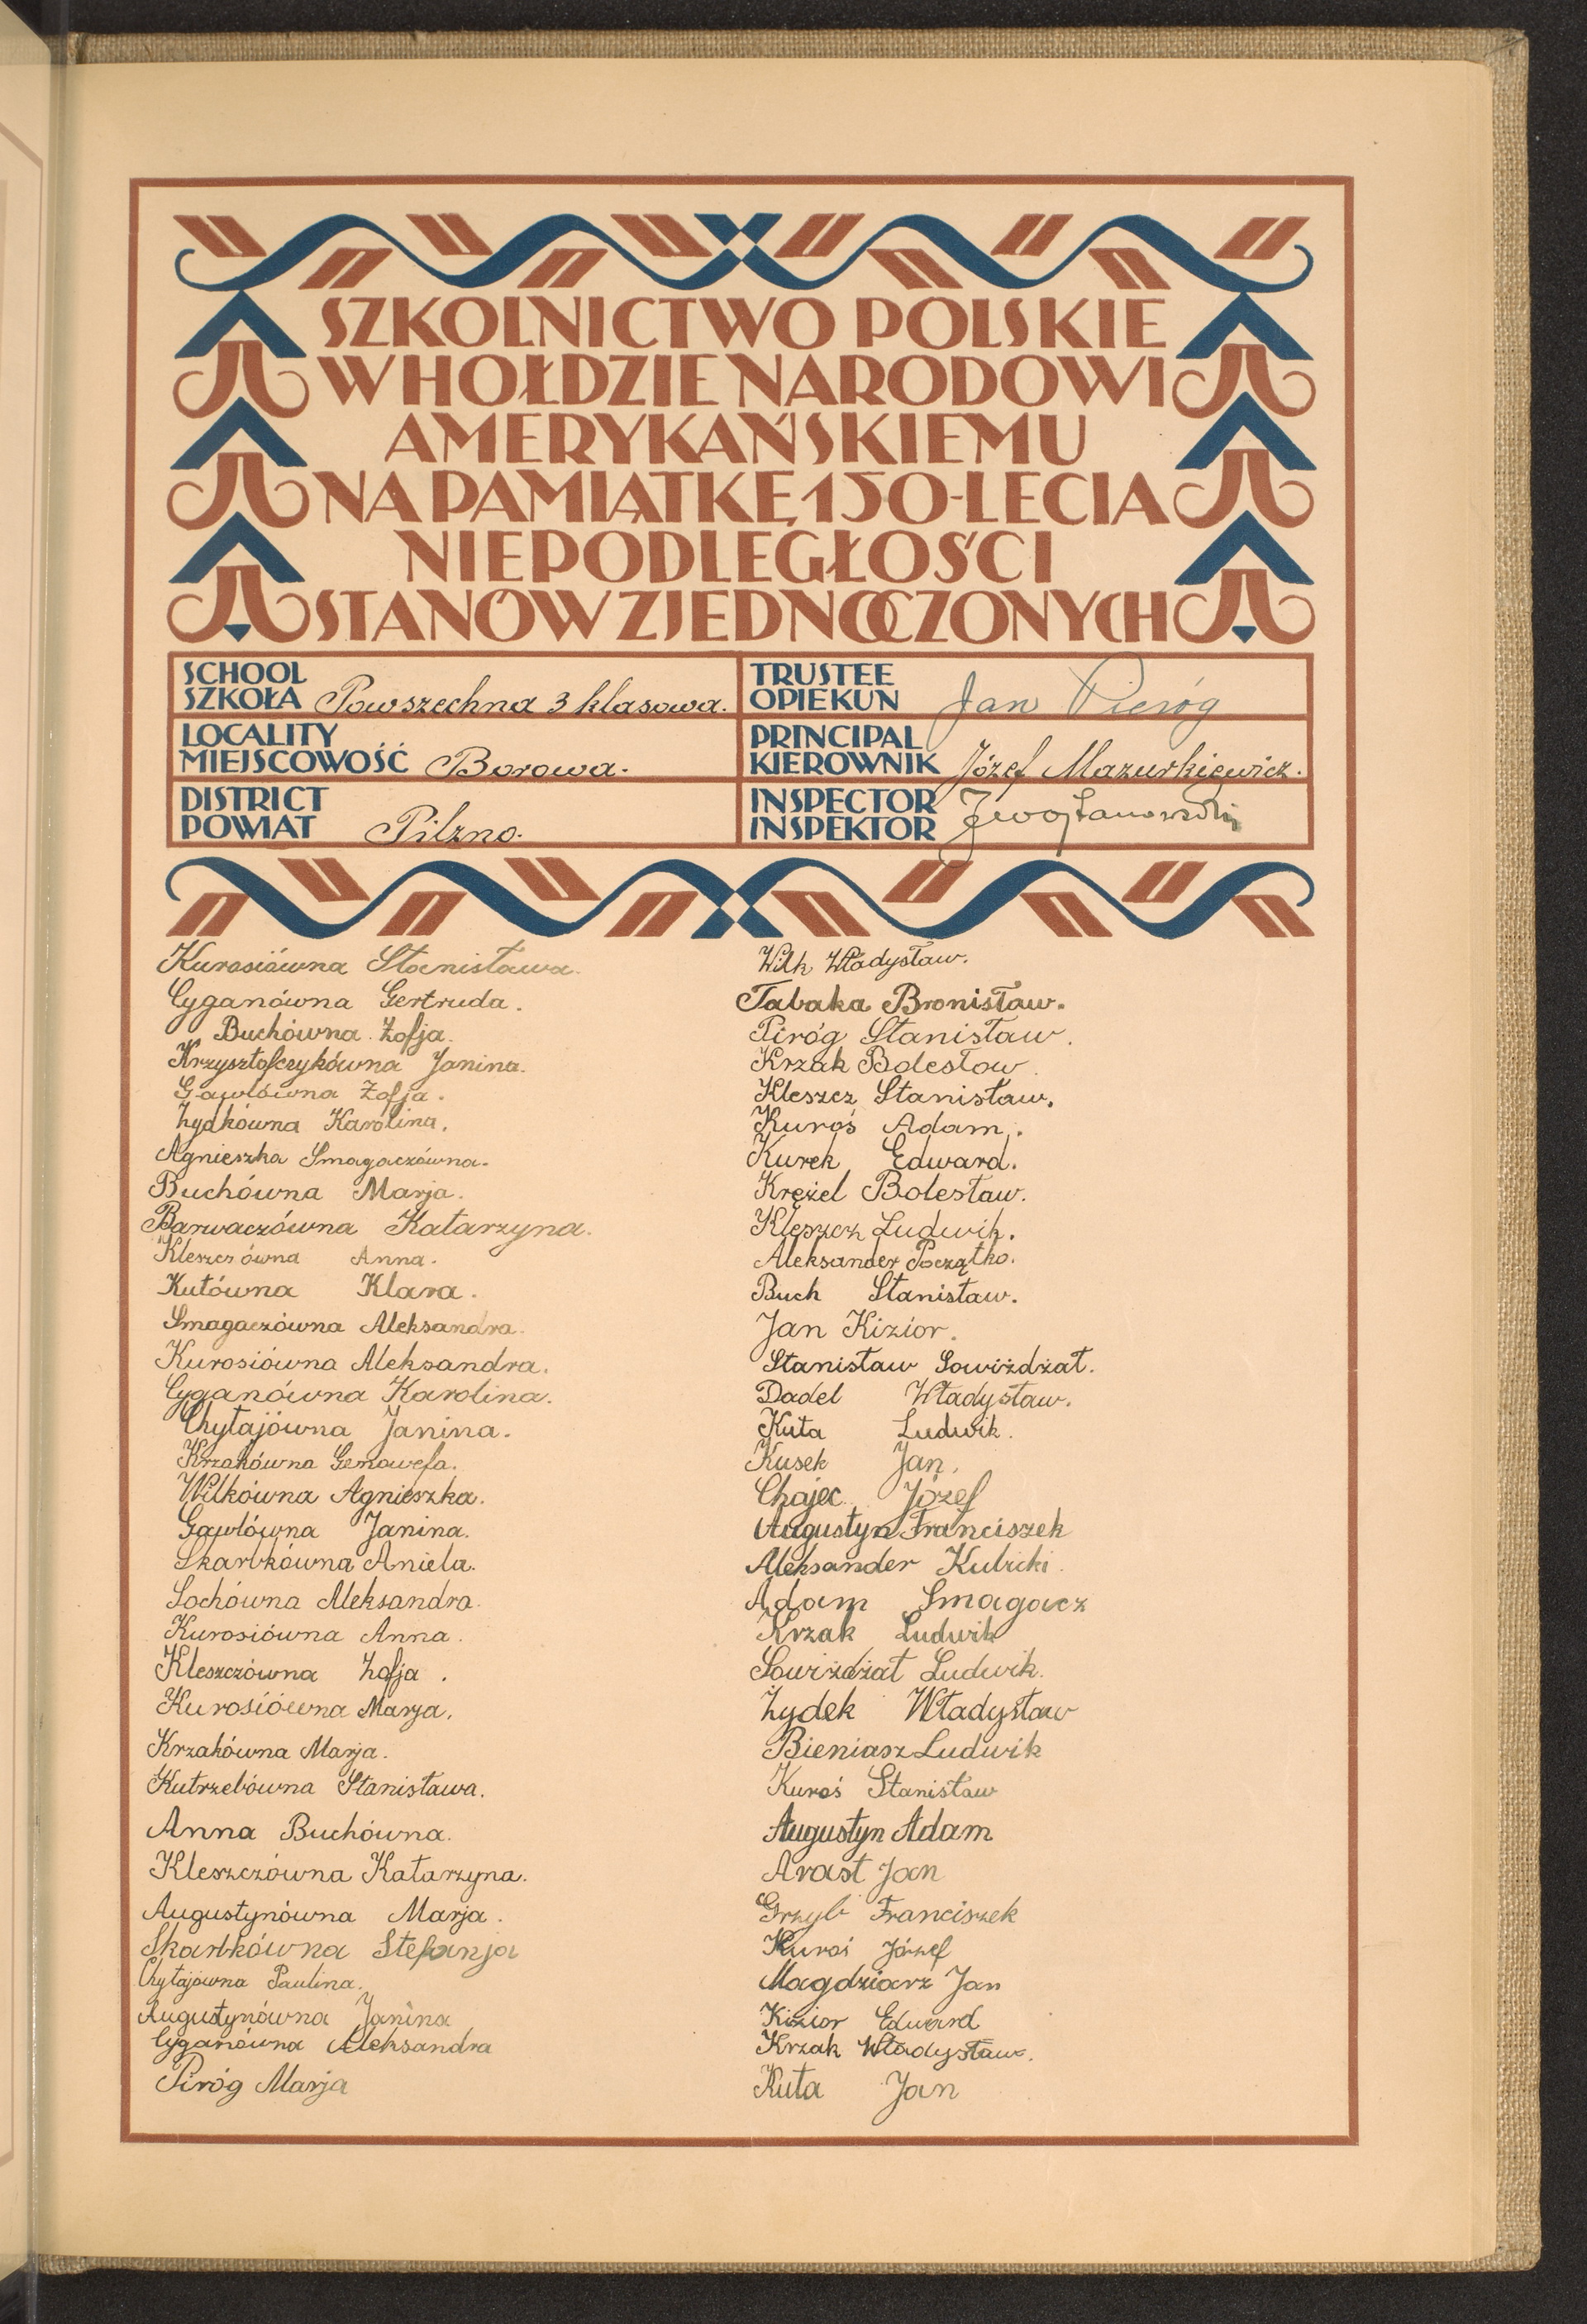 SZKOLNICTWO POLSKIE
W HOŁDZIE NARODOWI
AMERYKAŃSKIEMU
NA PAMIĄTKĘ 150-LECIA
NIEPODLEGŁOŚCI
STANÓW ZJEDNOCZONYCH
SCHOOL
SZKOŁA Powszechna 3 klasowa.
TRUSTEE
OPIEKUN Jan Pieróg
LOCALITY
MIEJSCOWOŚĆ Borowa.
PRINCIPAL
KIEROWNIK Józef Mazurkiewicz.
DISTRICT
POWIAT Pilzno.
INSPECTOR
INSPEKTOR
Kurosiówna Stanisława.
Cyganówna Gertruda.
Buchówna Zofja.
Krzysztofczykówna Janina.
Gawlówna Zofja.
Zydkówna Karolina.
Agnieszka Smagaczówna.
Buchówna Marja.
Barwaczówna Katarzyna.
Kleszczówna Anna.
Kutówna Klara.
Smagaczówna Aleksandra.
Kurosiówna Aleksandra.
Cyganówna Karolina.
Chytajówna Janina.
Krzakówna Genowefa.
Wilkówna Agnieszka.
Gawlówna Janina.
Skarbkówna Aniela.
Sochówna Aleksandra.
Kurosiówna Anna.
Kleszczówna Zofja.
Kurosiówna Marja.
Krzakówna Marja.
Kutrzebówna Stanisława.
Anna Buchówna.
Kleszczówna Katarzyna.
Augustynówna Marja.
Skarbkówna Stefanja
Chytajówna Paulina.
Augustynówna Janina
Cyganówna Aleksandra
Piróg Marja
Wilk Władysław.
Tabaka Bronisław.
Piróg Stanisław.
Krzak Bolesław.
Kleszcz Stanisław.
Kuroś Adam.
Kurek Edward.
Krężel Bolesław.
Kleszcz Ludwik.
Aleksander Początko.
Buch Stanisław.
Jan Kizior.
Stanisław Sowiżdżał.
Dadel Władysław.
Kuta Ludwik.
Kusek Jan.
Chajec Józef
Augustyn Franciszek
Aleksander Kubicki.
Adam Smagacz
Krzak Ludwik
Sowiżdżał Ludwik.
Zydek Władysław
Bieniasz Ludwik
Kuroś Stanisław
Augustyn Adam
Arast Jan
Grzyb Franciszek
Kuroś Józef
Magdziarz Jan
Kizior Edward
Krzak Władysław.
Kuta Jan